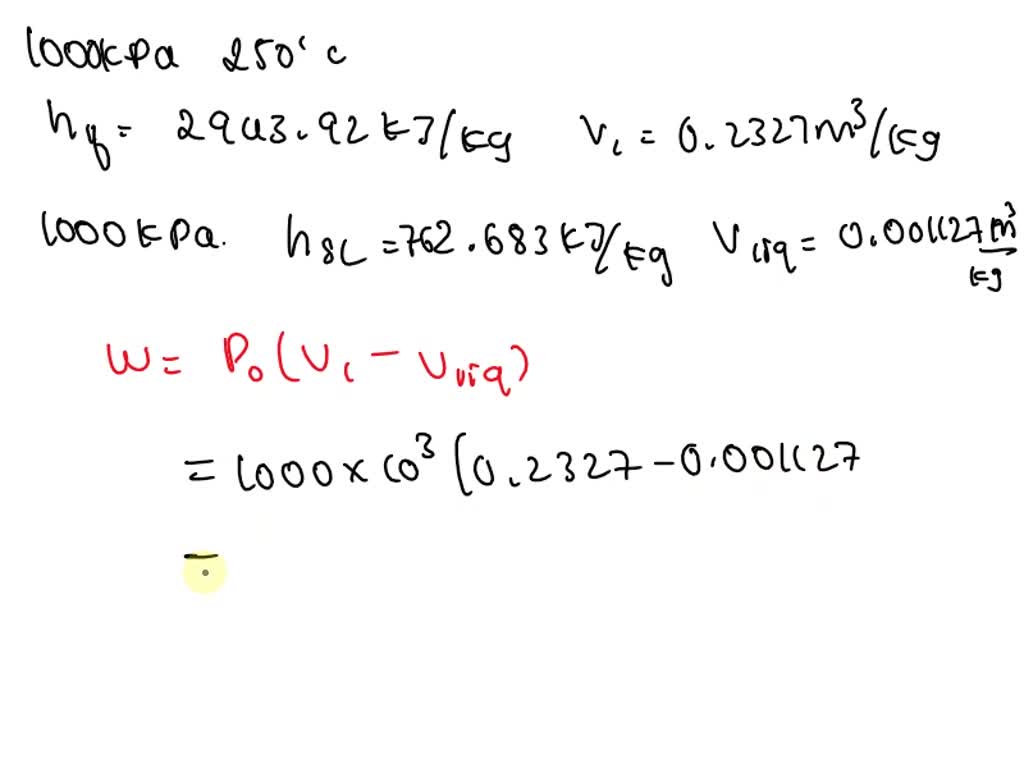 1000kPa 250°c
hg = 2943.92 kJ/kg V1 = 0.2327m³/kg
1000kPa. hSL = 762.683 kJ/kg Vliq = 0.001127 m³/kg
W = P0(V1 - Vliq)
= 1000 x 10³ (0.2327 - 0.001127
=